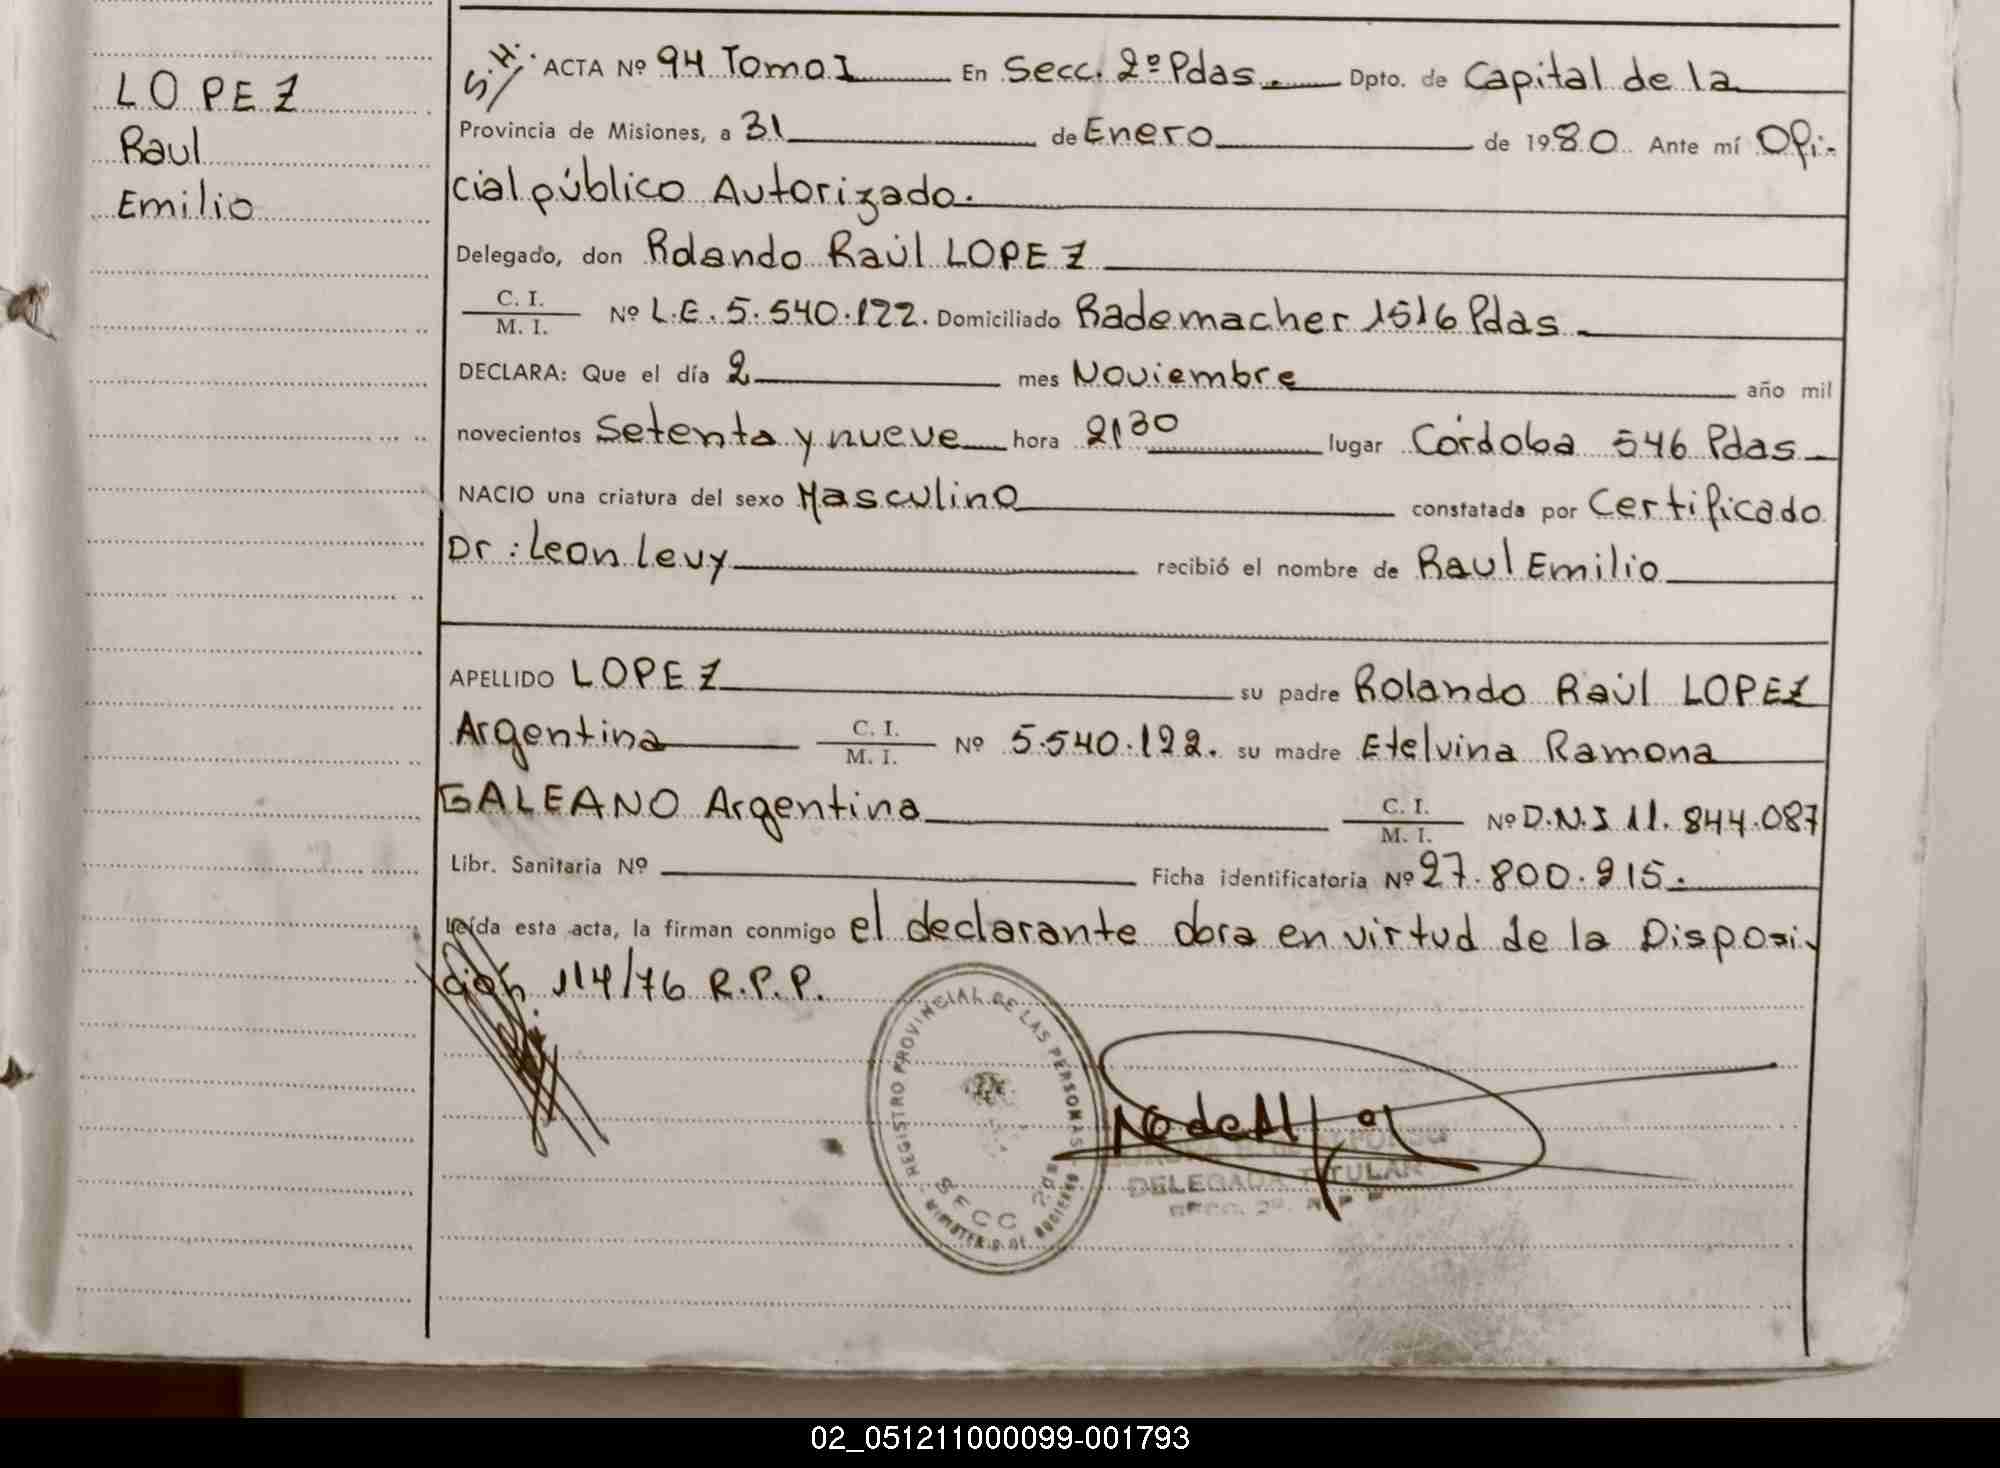 LOPEZ
Raul
Emilio
S.H. ACTA Nº 94 Tomo I En Secc. 2º Pdas. Dpto. de Capital de la
Provincia de Misiones, a 31 de Enero de 1980. Ante mí Ofi-
cial público Autorizado.
Delegado, don Rolando Raúl LOPEZ
C. I.
M. I. Nº L.E. 5.540.122. Domiciliado Rademacher 1516 Pdas
DECLARA: Que el día 2 mes Noviembre año mil
novecientos Setenta y nueve hora 21 30 lugar Córdoba 546 Pdas
NACIO una criatura del sexo Masculino constatada por Certificado
Dr: Leon Levy recibió el nombre de Raul Emilio
APELLIDO LOPEZ su padre Rolando Raúl LOPEZ
Argentina C. I.
M. I. Nº 5.540.122. su madre Etelvina Ramona
GALEANO Argentina C. I.
M. I. Nº D.N.I 11.844.087
Libr. Sanitaria Nº Ficha identificatoria Nº 27.800.915.
Leída esta acta, la firman conmigo el declarante obra en virtud de la Disposi-
ción 114/76 R.P.P.
REGISTRO PROVINCIAL DE LAS PERSONAS
SECC 2da
DELEGADA TITULAR
02_051211000099-001793